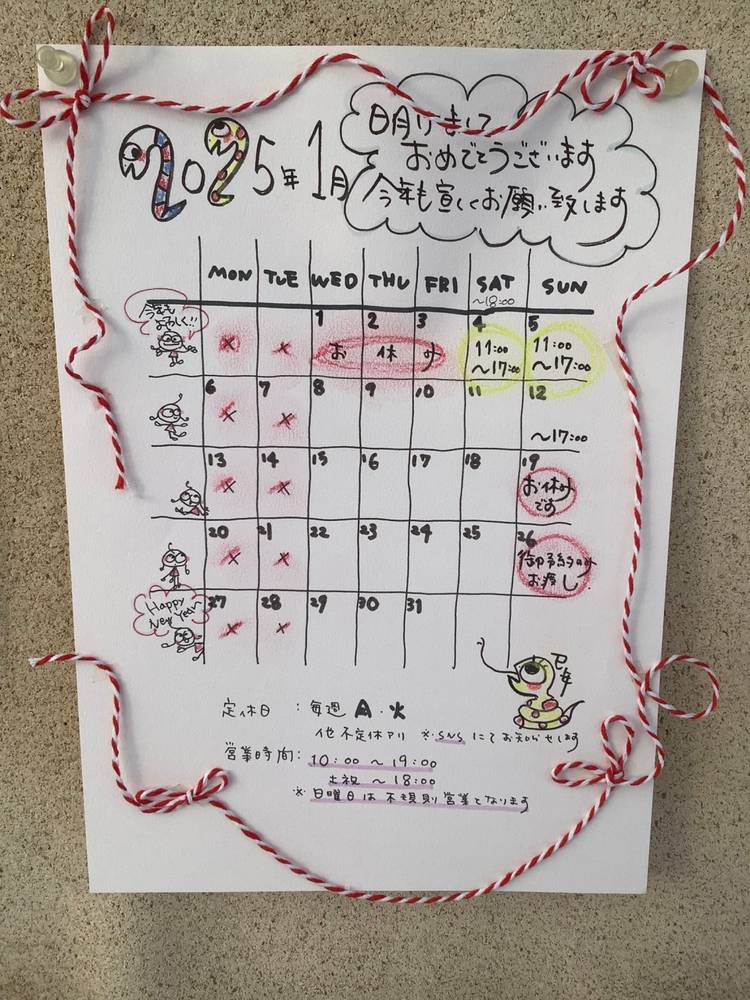 2025年1月
明けまして
おめでとうございます
今年も宜しくお願い致します
MON TUE WED THU FRI SAT SUN
～18:00
今年も
よろしく!!
1 2 3 4 5
× × お休み 11:00 11:00
～17:00 ～17:00
6 7 8 9 10 11 12
× × ～17:00
13 14 15 16 17 18 19
× × お休み
です
20 21 22 23 24 25 26
× × 御予約のみ
お渡し
Happy
New Year
27 28 29 30 31
× ×
巳年
定休日 : 毎週 月・火
他 不定休アリ ※SNSにてお知らせします
営業時間: 10:00 ～ 19:00
土祝 ～ 18:00
※ 日曜日は 不規則営業となります